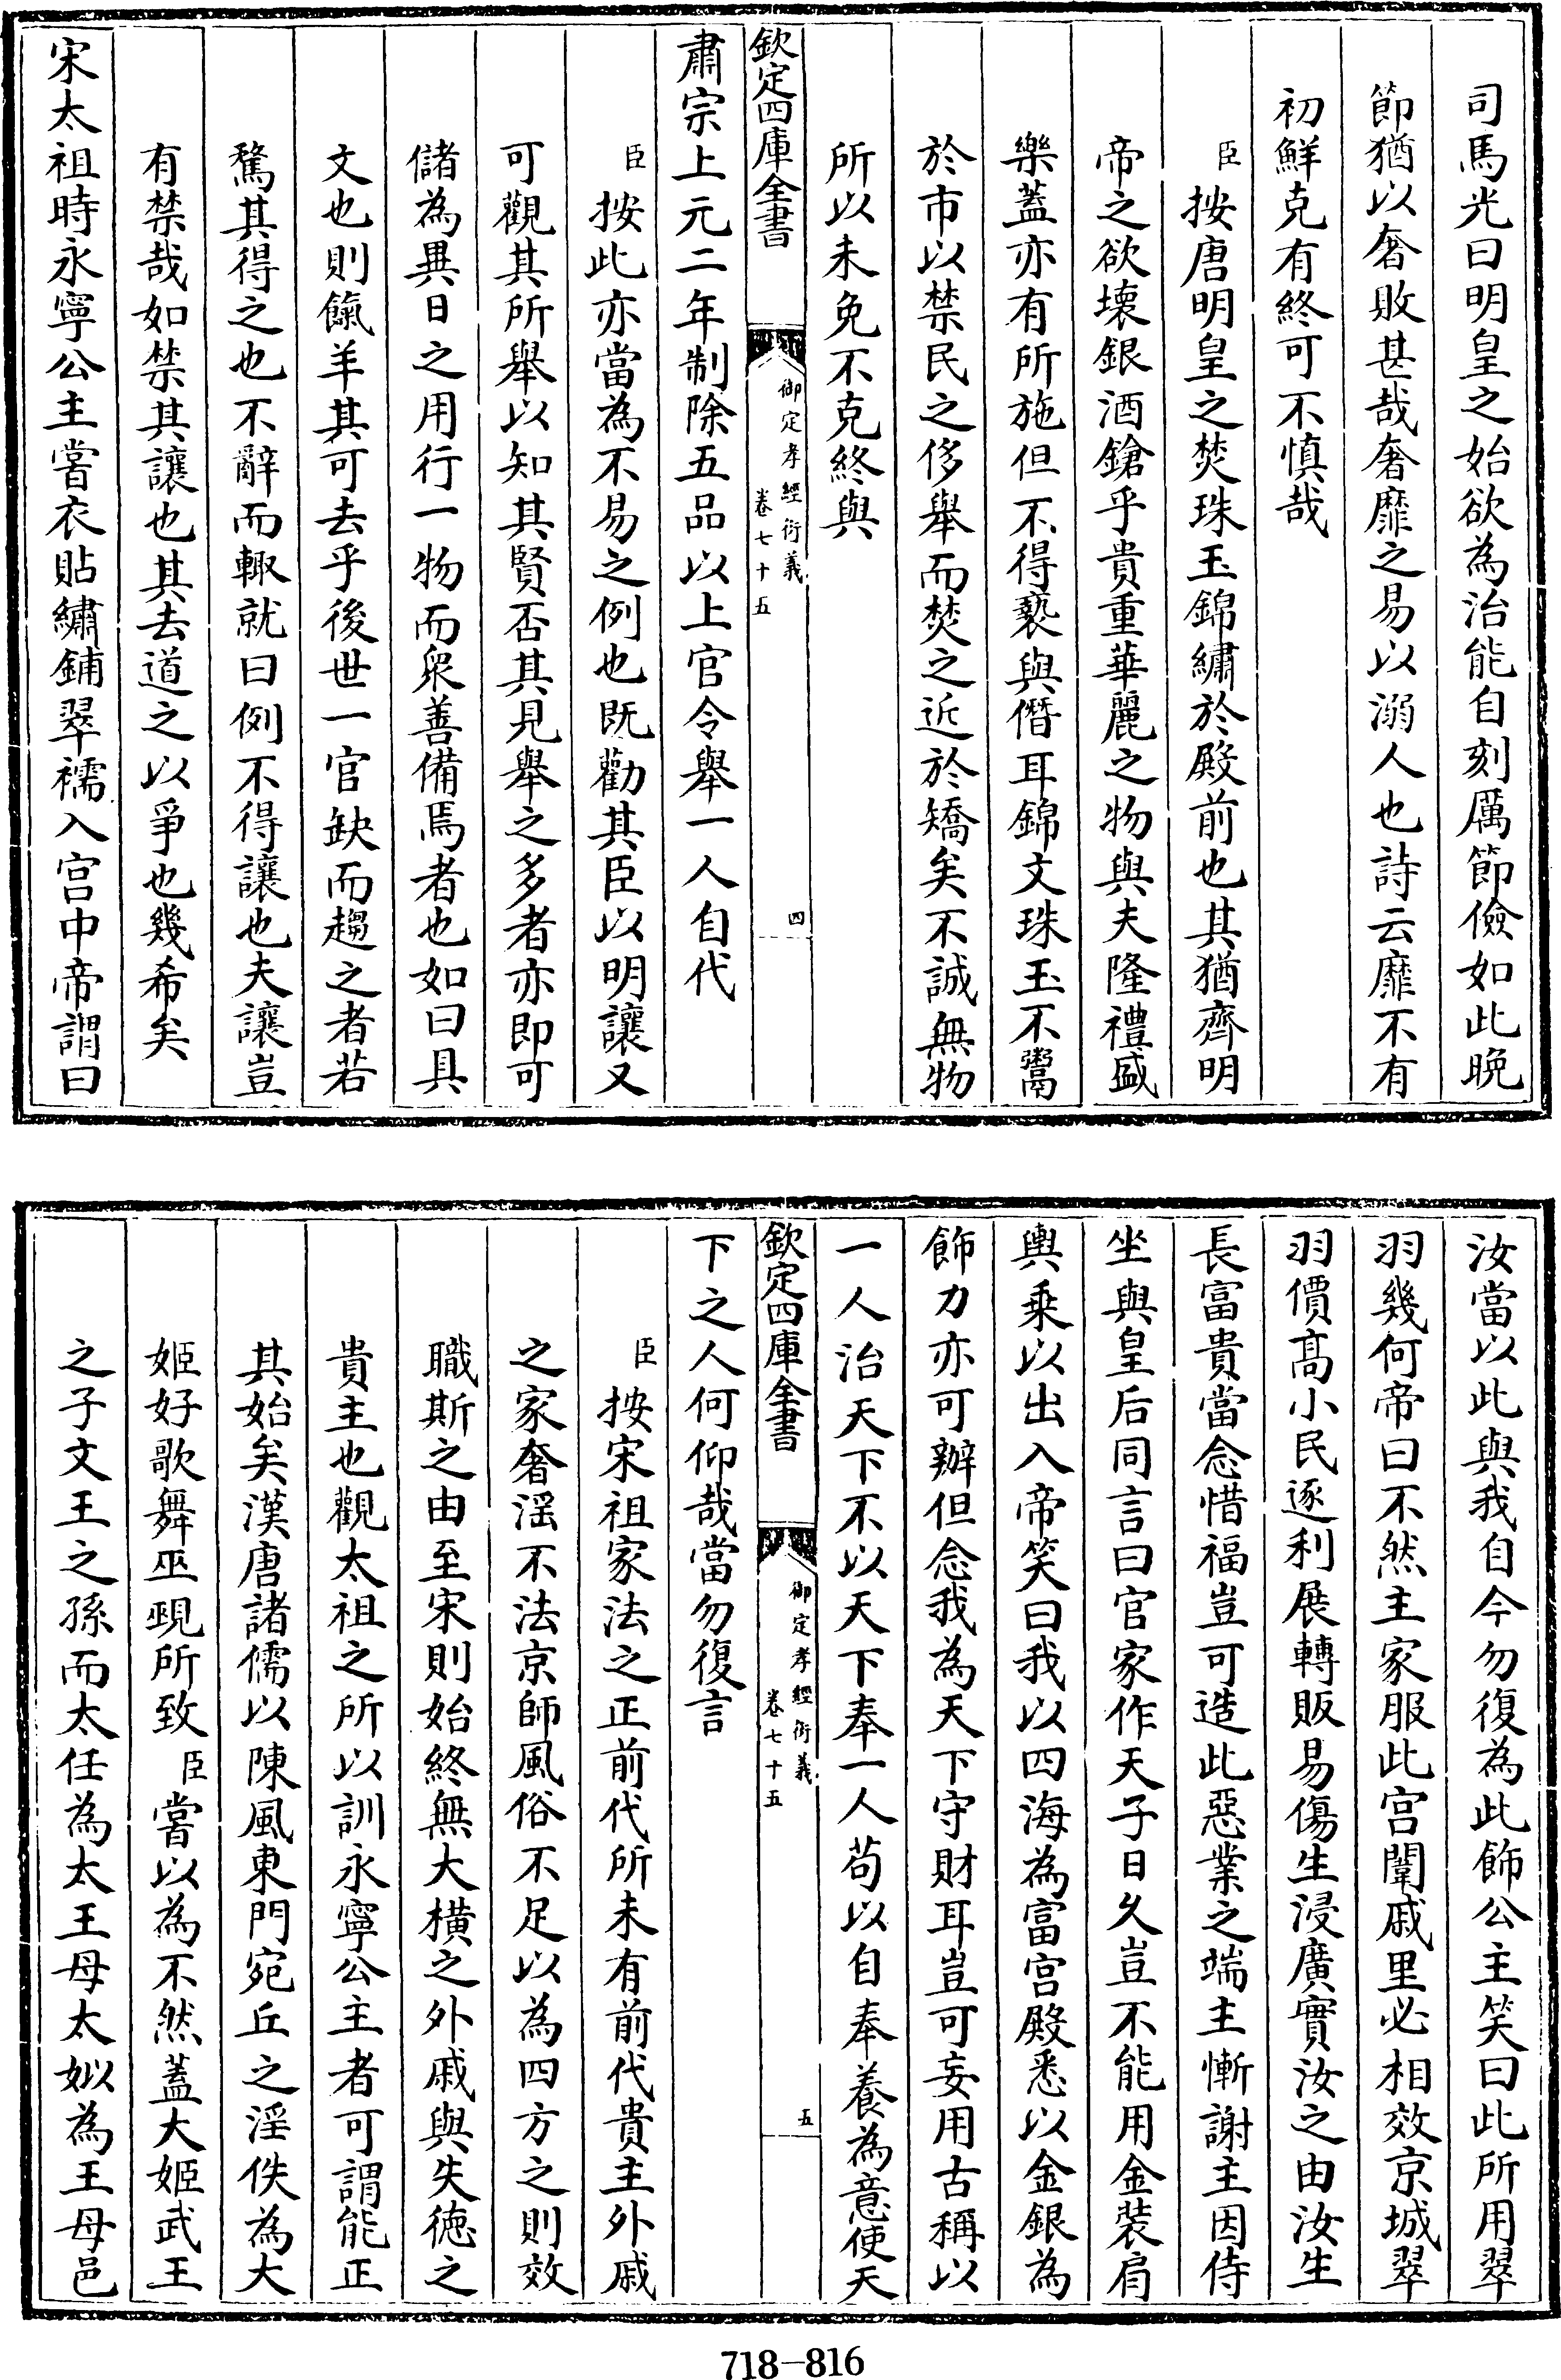 司馬光曰明皇之始欲為治能自刻厲節儉如此晚
節猶以奢敗甚哉奢靡之易以溺人也詩云靡不有
初鮮克有終可不慎哉
臣按唐明皇之焚珠玉錦繡於殿前也其猶齊明
帝之欲壞銀酒鎗乎貴重華麗之物與夫隆禮盛
樂蓋亦有所施但不得褻與僭耳錦文珠玉不鬻
於市以禁民之侈舉而焚之近於矯矣不誠無物
所以未免不克終與
欽定四庫全書
御定孝經衍義
卷七十五
四
肅宗上元二年制除五品以上官令舉一人自代
臣按此亦當為不易之例也既勸其臣以明讓又
可觀其所舉以知其賢否其見舉之多者亦即可
儲為異日之用行一物而衆善備焉者也如曰具
文也則餼羊其可去乎後世一官缺而趨之者若
騖其得之也不辭而輙就曰例不得讓也夫讓豈
有禁哉如禁其讓也其去道之以爭也幾希矣
宋太祖時永寧公主嘗衣貼繡鋪翠襦入宫中帝謂曰
汝當以此與我自今勿復為此飾公主笑曰此所用翠
羽幾何帝曰不然主家服此宫闈戚里必相效京城翠
羽價髙小民逐利展轉販易傷生浸廣實汝之由汝生
長富貴當念惜福豈可造此惡業之端主慚謝主因侍
坐與皇后同言曰官家作天子日久豈不能用金裝肩
輿乗以出入帝笑曰我以四海為富宫殿悉以金銀為
飾力亦可辦但念我為天下守財耳豈可妄用古稱以
一人治天下不以天下奉一人茍以自奉養為意使天
欽定四庫全書
御定孝經衍義
卷七十五
五
下之人何仰哉當勿復言
臣按宋祖家法之正前代所未有前代貴主外戚
之家奢淫不法京師風俗不足以為四方之則效
職斯之由至宋則始終無大横之外戚與失徳之
貴主也觀太祖之所以訓永寧公主者可謂能正
其始矣漢唐諸儒以陳風東門宛丘之淫佚為大
姬好歌舞巫覡所致臣嘗以為不然蓋大姬武王
之子文王之孫而太任為太王母太姒為王母邑
718-816